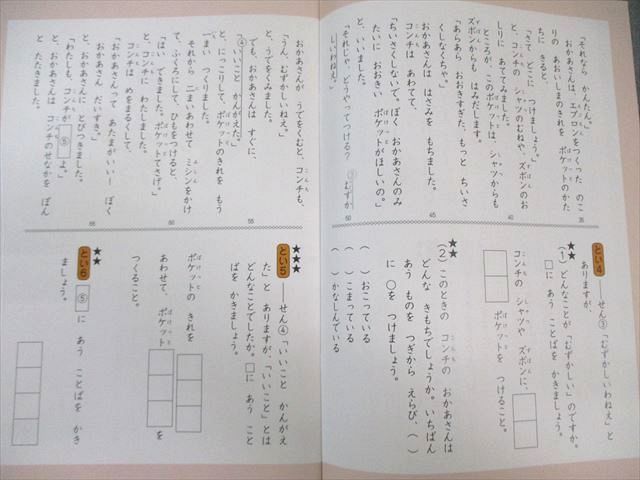 「それなら かんたん。」
おかあさんは、エプロンをつくった のこ
りの あおいしまのきれを ポケットのかた
ちに きると、
「さて どこに つけましょう。」
と、コンチの シャツのむねや、ズボンのお
しりに あててみました。
ところが、このポケットは、シャツからも
ズボンからも はみだします。
「あらあら おおきすぎた。もっと ちいさ
くしなくちゃ。」
おかあさんは はさみを もちました。
コンチは あわてて、
「ちいさくしないで。ぼく おかあさんのみ
たいに おおきい ポケットがほしいの。」
と、いいました。
「それじゃ、どうやってつける? ③むずか
しいわねえ。」
35
40
45
50
とい4
せん③「むずかしいわねえ」と
ありますが、
★★
(1) どんなことが「むずかしい」のですか。
□に あう ことばを かきましょう。
コンチの シャツや ズボンに、
ポケットを つけること。
★★
(2) このときの コンチの おかあさんは
どんな きもちでしょうか。いちばん
あう ものを つぎから えらび、( )
に ○を つけましょう。
( ) おこっている
( ) こまっている
( ) かなしんでいる
おかあさんが うでをくむと、コンチも、
「うん、むずかしいねえ。」
と、うでをくみました。
でも、おかあさんは すぐに、
「④いいこと かんがえた。」
と、にっこりして、ポケットのきれを もう
一まい つくりました。
それから 二まいあわせて ミシンをかけ
て、ふくろにして、ひもをつけると、
「はい できました。ポケットてさげ。」
と、コンチに わたしました。
コンチは めをまるくして、
「おかあさんって あたまがいい! ぼく
おかあさん だいすき。」
と、おかあさんに とびつきました。
「わたしも、コンチが ⑤ よ。」
と、おかあさんは コンチのせなかを ぽん
と たたきました。
55
60
65
とい5
★★★
せん④「いいこと かんがえ
た」と ありますが、「いいこと」とは
どんなことでしたか。□に あう こと
ばを かきましょう。
ポケットの きれを
あわせて、ポケット を
つくること。
とい6
★★
⑤ に あう ことばを かき
ましょう。